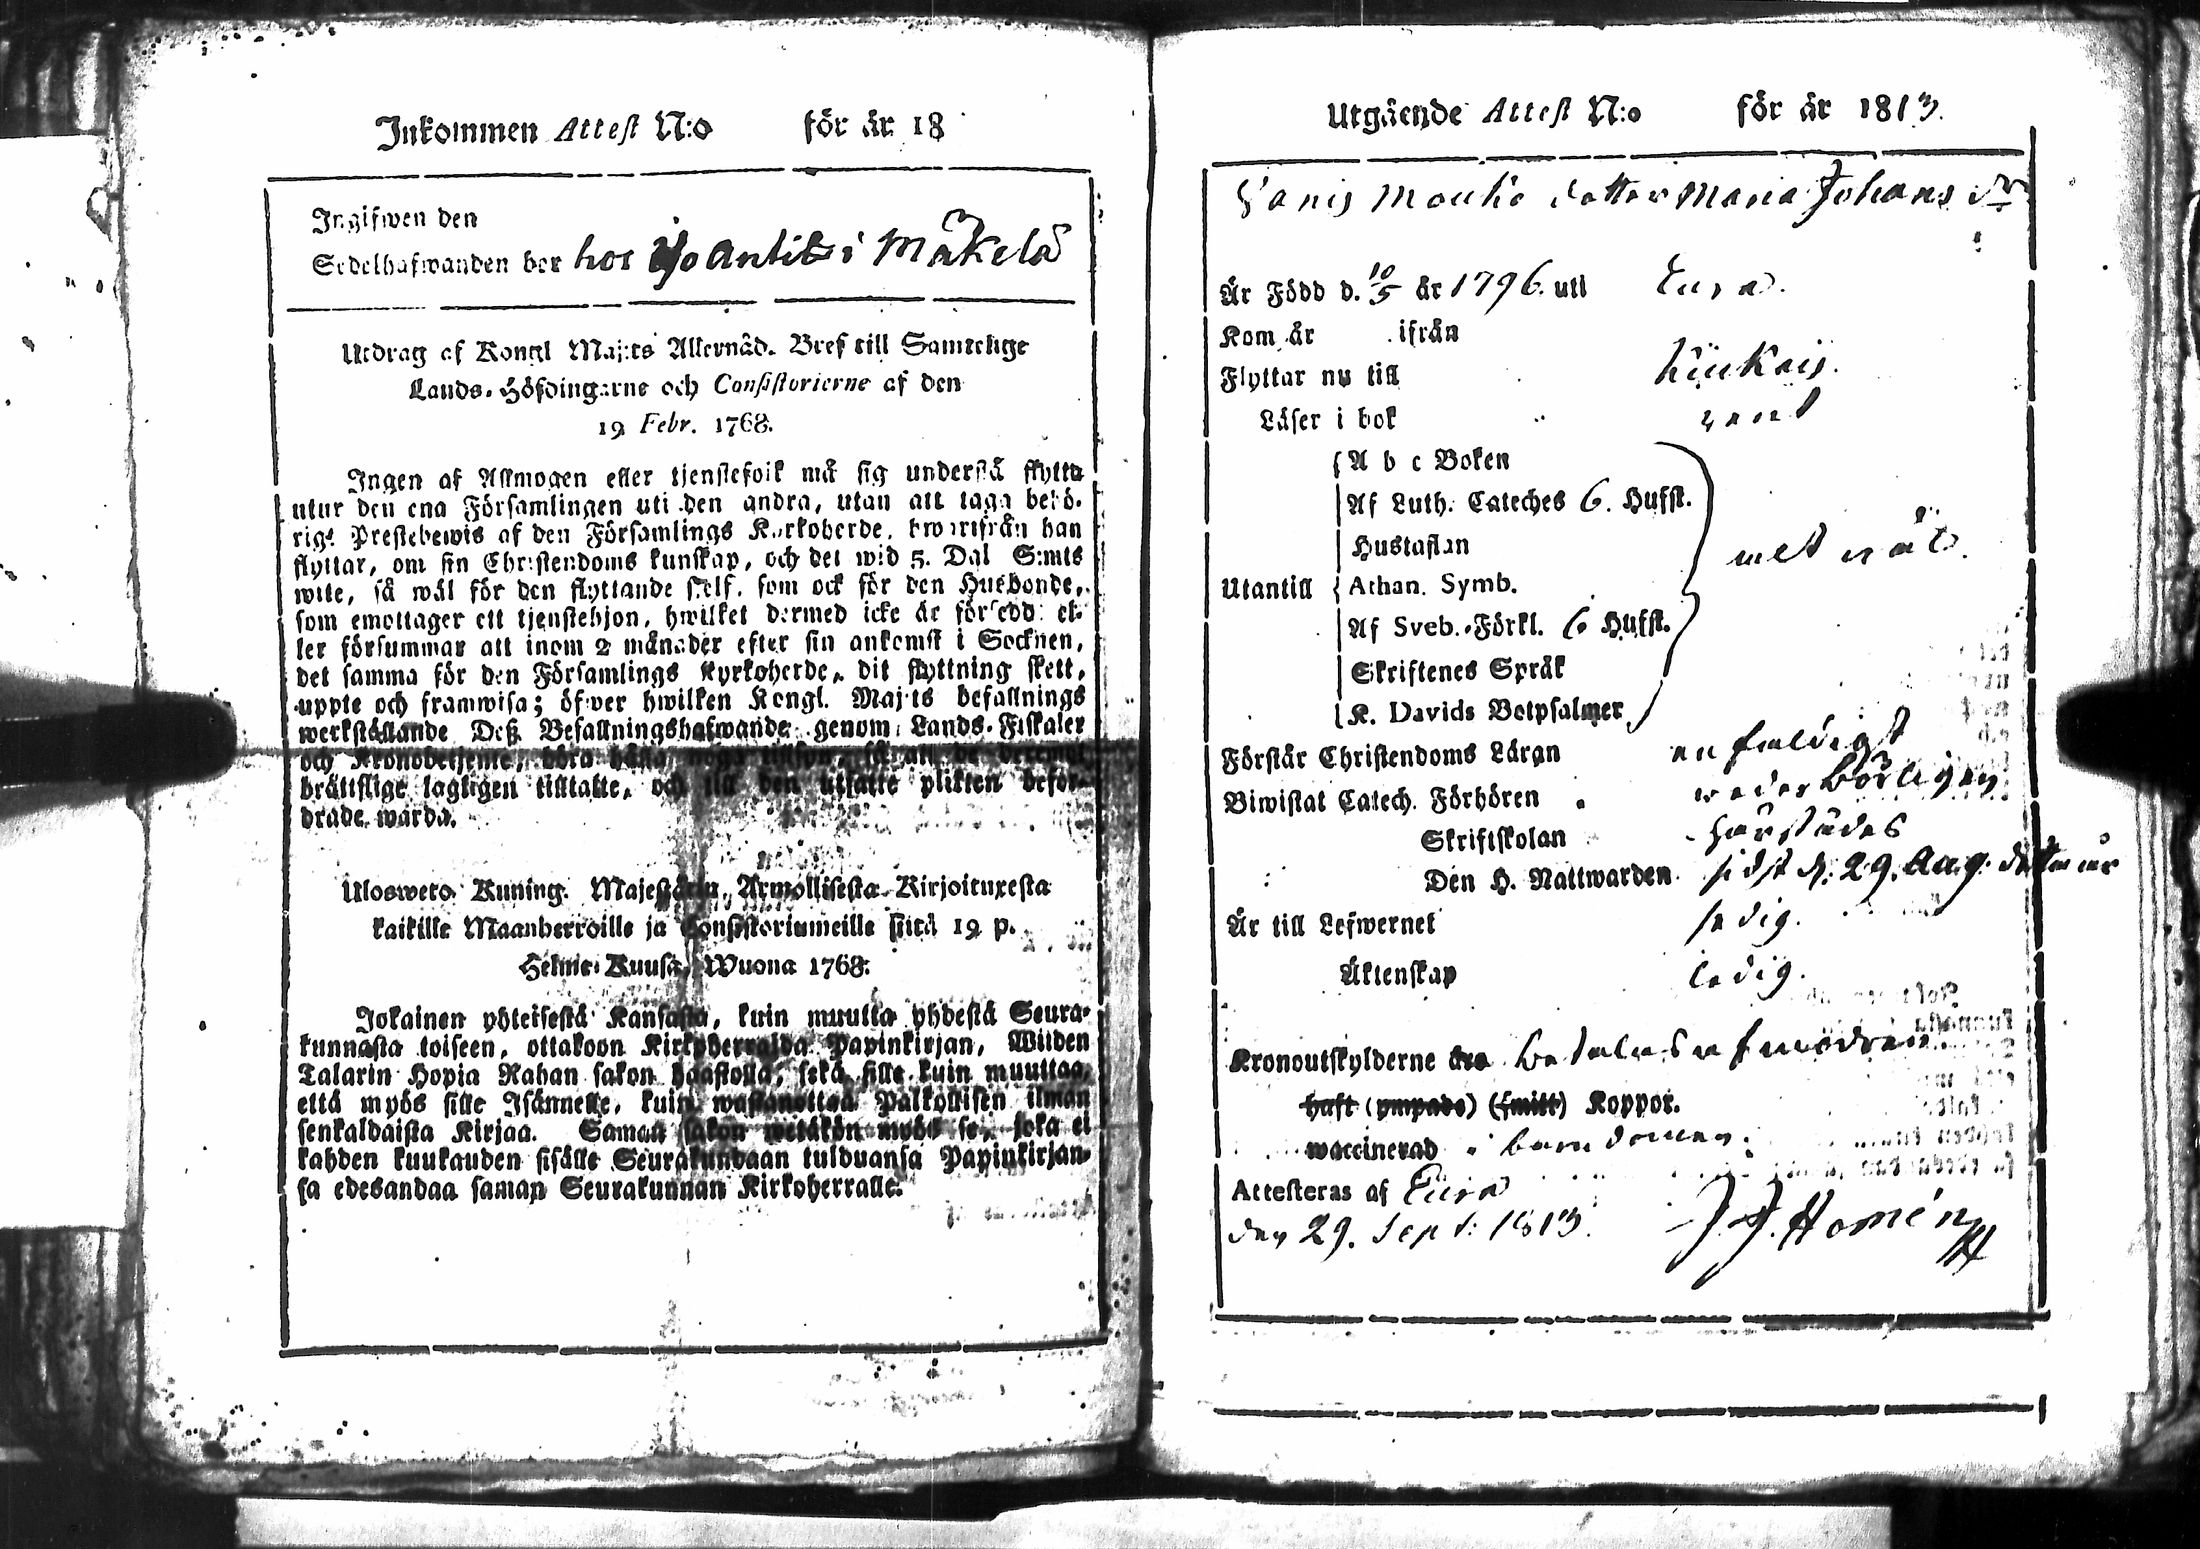 Inkommen Attest N:o för år 18
Ingifwen den
Sedelhafwanden bor hos Antila i Mäkelä
Utdrag af Kongl Maj:ts Allernåd. Bref till Samtelige
Lands-Höfdingarne och Consistorierne af den
19 Febr. 1768.
Ingen af Allmogen eller tjenstefolk må sig understå flytta
utur den ena Församlingen uti den andra, utan att taga behö-
rigt Prestebewis af den Församlings Kyrkoherde, hwarifrån han
flyttar, om sin Christendoms kunskap, och det wid 5. Dal S:mts
wite, så wäl för den flyttande sielf, som ock för den Husbonde,
som emottager ett tjenstehjon, hwilket dermed icke är försedd el-
ler försummar att inom 2 månader efter sin ankomst i Socknen,
det samma för den Församlings Kyrkoherde, dit flyttning skett,
uppte och framwisa; öfwer hwilken Kongl. Maj:ts befallnings
werkställande Deß Befallningshafwande genom Lands-Fiskaler
och Kronobetjente, böra hålla noga tillsyn, så att de deremot
brättslige lagligen tilltalte, och till den utsatte plikten befor-
drade warda.
Ulosweto Kuning. Majestätin Armollisesta Kirjoituxesta
kaikille Maanherroille ja Consistoriumeille siitä 19 p.
Helme-Kuusa, Wuona 1768.
Jokainen yhteisestä Kansasta, kuin muutta yhdestä Seura-
kunnasta toiseen, ottakoon Kirkoherralda Papinkirjan, Wiiden
Talarin Hopia Rahan sakon haastolla, sekä sille kuin muuttaa,
että myös sille Isännelle, kuin wastanottaa Palkollisen ilman
senkaldaista Kirjaa. Saman sakon wetäkön myös se, joka ei
kahden kuukauden sisälle Seurakundaan tulduansa Papinkirjan-
sa edesandaa saman Seurakunnan Kirkoherralle.
Utgäende Attest N:o för år 1813.
dotter Maria Johans dr
Är Född d. 10/5 år 1796. uti Eura.
Kom år ifrån
Flyttar nu till
Läser i bok rent
A b c Boken
Af Luth. Cateches 6. Hufst.
Hustaflan
Utantill Athan. Symb.
Af Sveb. Förkl. 6 Hufst.
Skriftenes Språk
K. Davids Botpsalmer
Förstår Christendoms Läran enfaldigt
Biwistat Catech. Förhören wederbörligen
Skriftskolan härstädes
Den H. Nattwarden sidst d. 29. Aug. detta år
Är till Lefwernet sedig.
Äktenskap ledig.
Kronoutskylderne betalas af modren
haft (ympade) (smitt) Koppor.
waccinerad i barndomen.
Attesteras af Eura
den 29. Sept: 1813. J. J. Homén